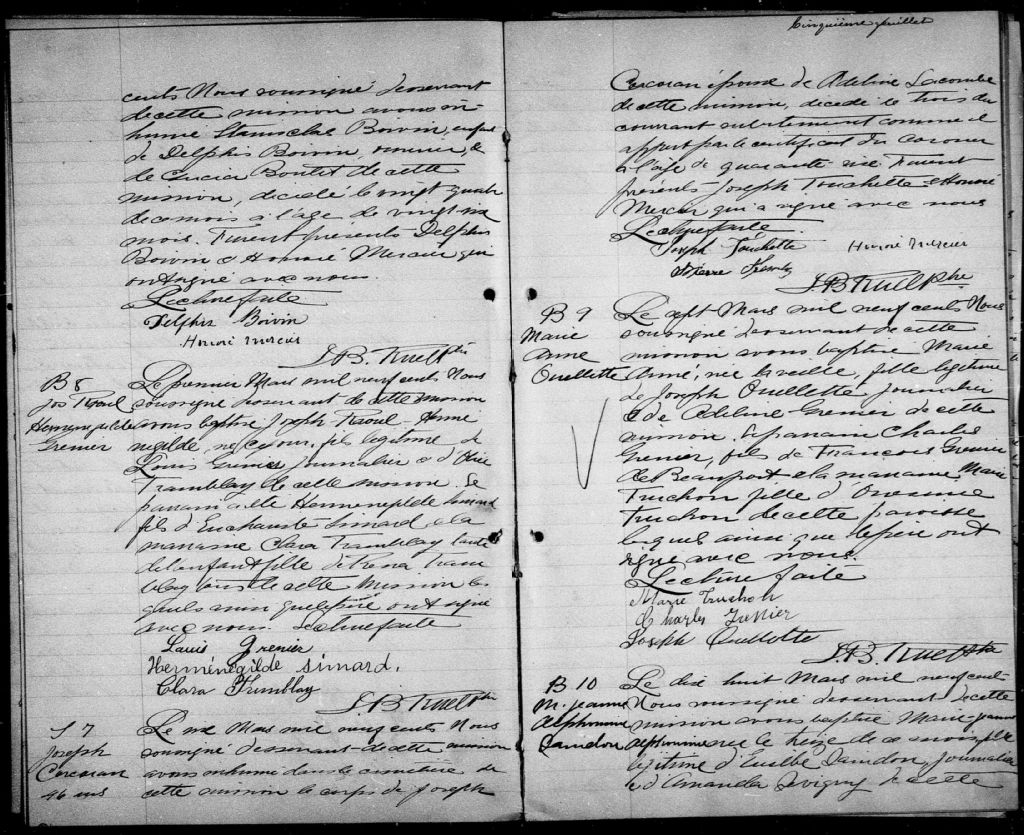 cents Nous soussigné desservant
de cette mission avons in-
humé Stanislas Boivin, enfant
de Delphis Boivin, ouvrier, &
de Boutet de cette
mission, décédé le vingt quatre
de ce mois à l'age de vingt six
mois. Furent présents Delphis
Boivin & Honoré Mercier qui
ont signé avec nous.
Lecture faite
Delphis Boivin
Honoré Mercier
J. B. Ruel Ptre
B 8
Jos Raoul
Hermenegilde
Grenier
Le premier Mars mil neuf cents Nous
soussigné desservant de cette mission
avons baptisé Joseph Raoul Herme
negilde, né ce jour, fils legitime de
Louis Grenier journalier & d'
Tramblay de cette mission. Le
parrain a été Hermenegilde Simard
fils d'Euchariste Simard & la
marraine Clara Tramblay tante
de l'enfant fille de Tram
blay tous de cette Mission les
quels ainsi que le père ont signé
avec nous. Lecture faite
Louis Grénier
Herménégilde Simard.
Clara Tremblay
J. B. Ruel Ptre
S 7
Joseph
Corcoran
46 ans
Le six Mars mil neuf cents Nous
soussigné desservant de cette mission
avons inhumé dans le cimetière de
cette mission le corps de Joseph
Cinquième feuillet
Corcoran époux de Adeline Lacombe
de cette mission, décédé le trois du
courant subitement comme il
appert par le certificat du coroner
à l'age de quarante six Furent
présents Joseph Touchette & Honoré
Mercier qui a signé avec nous
Lecture faite.
Joseph Touchette Honoré Mercier
Pierre
J. B. Ruel Ptre
B 9
Marie
Anne
Ouellette
Le sept Mars mil neuf cents Nous
soussigné desservant de cette
mission avons baptisé Marie
Anne, née la veille, fille legitime
de Joseph Ouellette journalier
& de Adeline Grenier de cette
mission. Le parrain Charles
Grenier, fils de François Grenier
de Beauport & la marraine Marie
Truchon fille d'Onesime
Truchon de cette paroisse
lesquels ainsi que le père ont
signé avec nous.
Lecture faite
Marie Truchon
Charles Grenier
Joseph Ouellette
J. B. Ruel Ptre
B 10
M. Jeanne
Alphonsine
Dandon
Le dix huit Mars mil neuf cent
Nous soussigné desservant de cette
mission avons baptisé Marie Jeanne
Alphonsine née le treize de ce mois fille
legitime d'Dandon, journalier
& d'Amanda Sevigny de cette